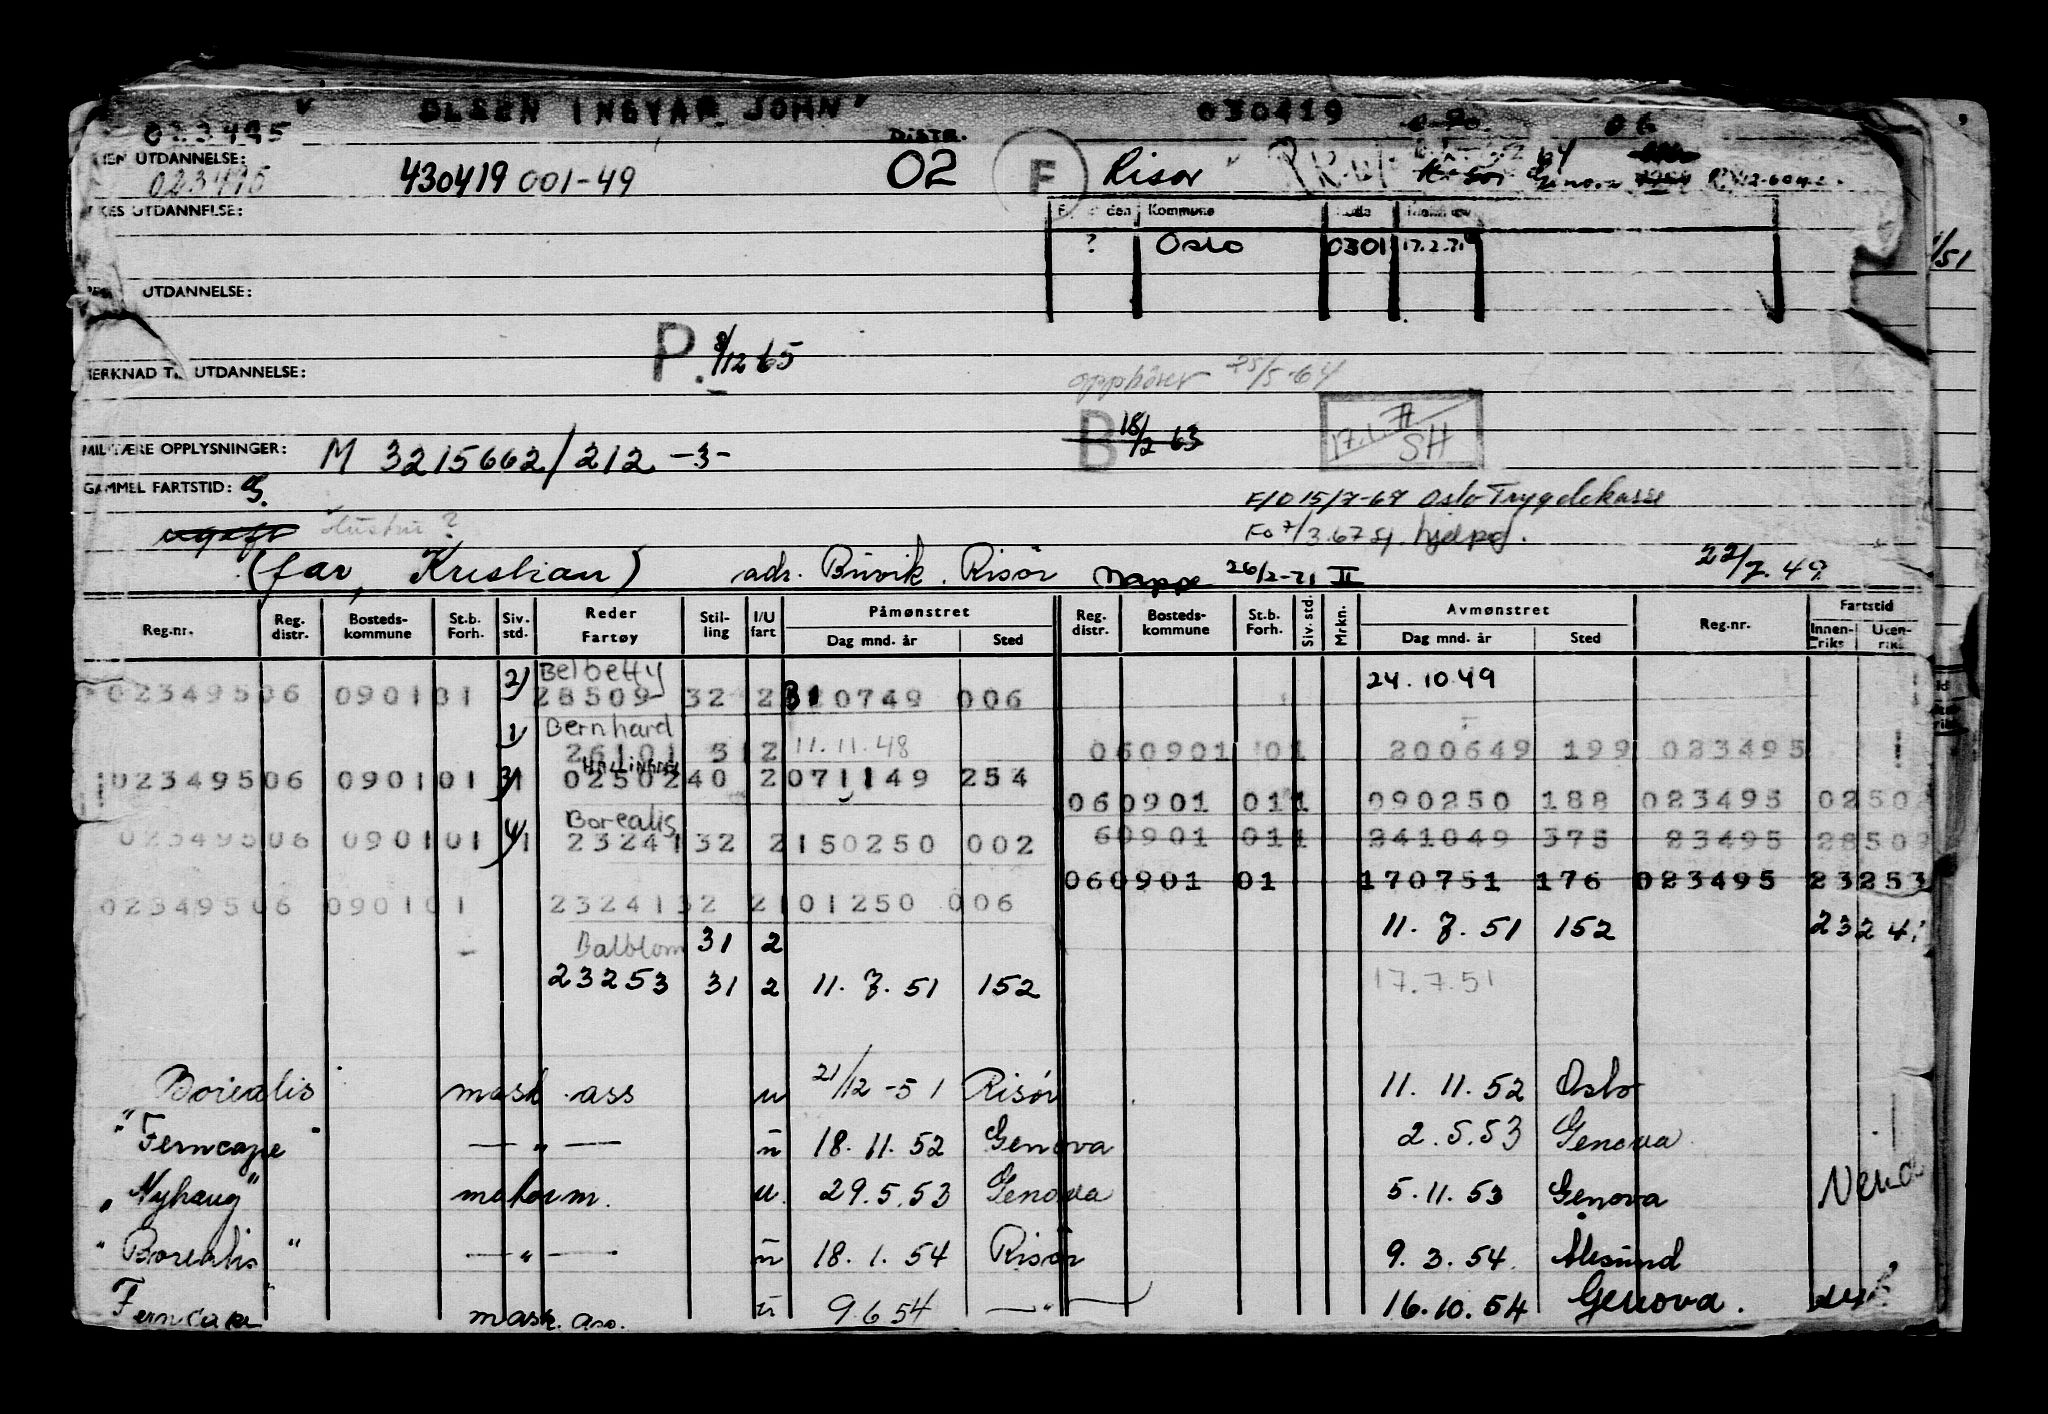 OLSEN INGVAR JOHN 030419 06
023495 DISTR.
UTDANNELSE:
023495 430419 001-49 02 F Risør
UTDANNELSE:
Kommune
? Oslo 0301 17.2.71
UTDANNELSE:
P. 8/12 65
UTDANNELSE: opphører 25/5-64
B 18/2 63 17.1.71 SH
MILITÆRE OPPLYSNINGER: M 3215662/212 -3-
GAMMEL FARTSTID: 9.
F/O 15/7-67 Oslo Trygdekasse
ugift Hustru ? Fo 7/3.67
(far, Kristian) adr. Buvik. Risør Mappe 26/2-71 II 22/7.49
Reg.nr. Reg. distr. Bosteds-kommune St.b. Forh. Siv. std. Reder Fartøy Stil-ling I/U fart Påmønstret Dag mnd. år Sted Reg. distr. Bosteds-kommune St.b. Forh. Siv. std. Mrkn. Avmønstret Dag mnd. år Sted Reg.nr. Fartstid Innen-riks Uten-riks
2) Belbetty 24.10.49
023495 06 0901 01 28509 32 2 0749 006
1) Bernhard
26101 31 2 11.11.48 060901 01 200649 199 023495
HALLINGDAL
023495 06 0901 01 3) 1 02502 40 2 071149 254
060901 011 090250 188 023495 02502
Borealis
023495 06 0901 01 4) 1 23241 32 2 150250 002 60901 011 241049 375 23495 28509
060901 01 170751 176 023495 23253
023495 06 0901 01 23241 32 2 101250 006
11.7.51 152 23241
Balblom 31 2
23253 31 2 11.7.51 152 17.7.51
Borealis mask. ass u 21/12-51 Risør 11.11.52 Oslo
"Ferncape" —"— u 18.11.52 Genova 2.5.53 Genova
"Nyhaug" motorm. u. 29.5.53 Genova 5.11.53 Genova
"Borealis" —"— u 18.1.54 Risør 9.3.54 Ålesund
Ferncape mask. ass. u 9.6.54 —"— 16.10.54 Genova.